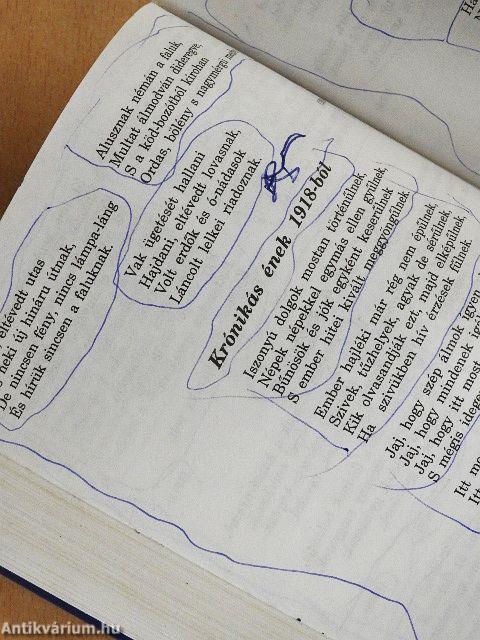 eltévedt utas
neki új hináru útnak,
De nincsen fény, nincs lámpa-láng
És hírük sincsen a faluknak.
Alusznak némán a faluk
Multat álmodván dideregve,
S a köd-bozótból kirohan
Ordas, bölény s nagymérgü
Vak ügetését hallani
Hajdani, eltévedt lovasnak,
Volt erdők és ó-nádasok
Láncolt lelkei riadoznak.
Krónikás ének 1918-ból
Iszonyú dolgok mostan történülnek,
Népek népekkel egymás ellen gyülnek,
Bűnösök és jók egyként keserülnek
S ember hitei kivált meggyöngülnek.
Ember hajléki már rég nem épülnek,
Szivek, tűzhelyek, agyak de sérülnek
Kik olvasandják ezt, majd elképülnek
Ha szivükben hív érzések fülnek.
Jaj, hogy szép álmok igyen
Jaj, hogy mindenek
Jaj, hogy itt most
S mégis
Itt
Antikvárium.hu